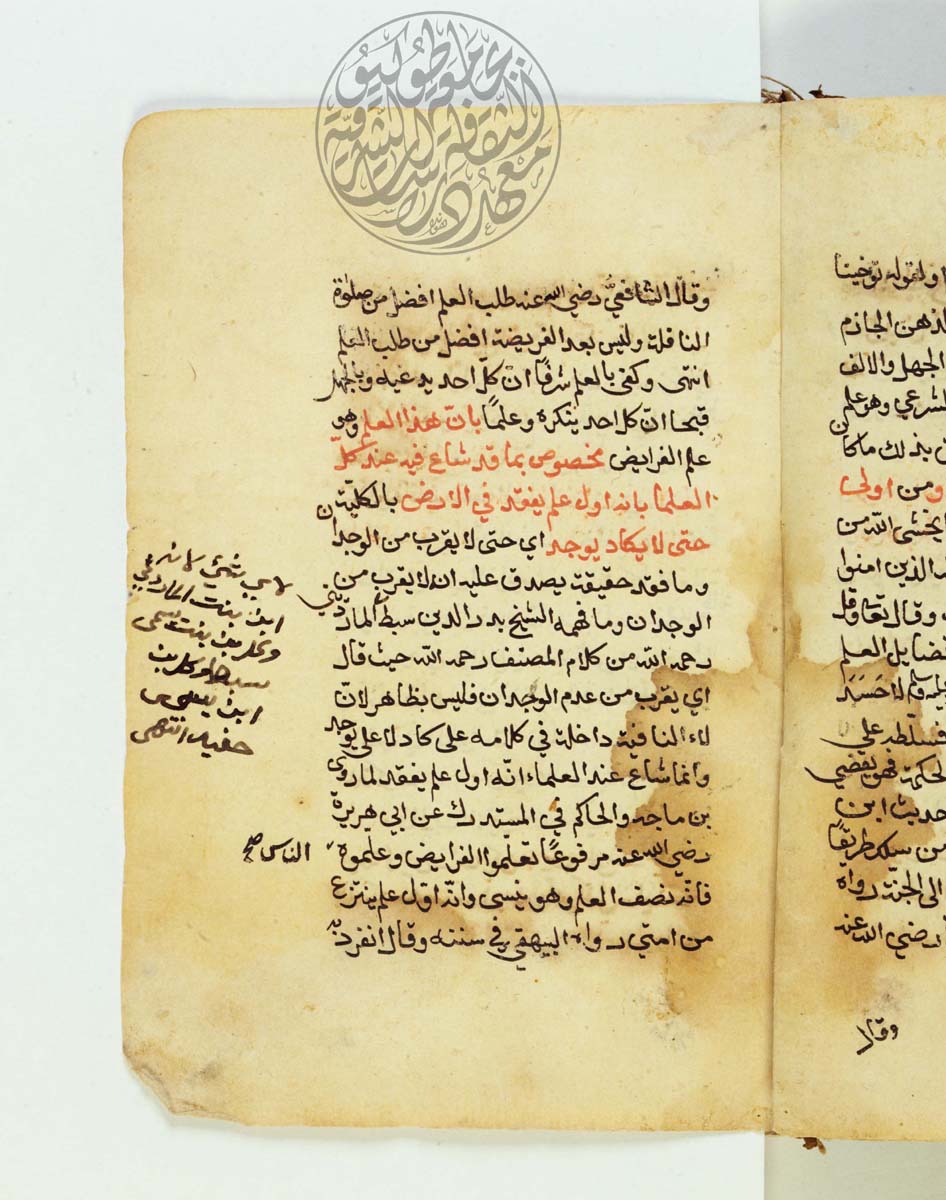 وقال الشافعي رضي الله عنه طلب العلم افضل من صلوة
النافلة وليس بعد الفريضة افضل من طلب العلم
انتهى وكفى بالعلم شرفا ان كل احد يدعيه وبالجهل
قبحا ان كل احد ينكره وعلما بان هذا العلم وهو
علم الفرايض مخصوص بما قد شاع فيه عند كل
العلما بانه اول علم يفقد في الارض بالكلية
حتى لا يكاد يوجد اي حتى لا يقرب من الوجدان
وما فقد حقيقة يصدق عليه انه لا يقرب من
الوجدان وما فهمه الشيخ بدر الدين سبط المارديني
رحمه الله من كلام المصنف رحمه الله حيث قال
اي يقرب من عدم الوجدان فليس بظاهر لان
لاء النافية داخلة في كلامه على كاد لا على يوجد
وانما شاع عند العلماء انه اول علم يفقد لما روى
بن ماجه والحاكم في المستدرك عن ابي هريرة
رضي الله عنه مرفوعا تعلموا الفرايض وعلموه
فانه نصف العلم وهو ينسى وانه اول علم ينتزع
من امتي رواه البيهقي في سننه وقال انفرد به
لانه
ابن بنت المارديني
بنت يسمى
ابن يسمى
حفيد انتهى
الناس صح
او لقوله توخينا
الذهن الجازم
الجهل والالف
الشرعي وهو علم
بذلك ما كان
ومن اولى
يخشى الله من
الذين امنوا
وقال تعا وقل
فضايل العلم
وسلم لا حسد
فسلطه على
الحكمة فهو يقضي
حديث ابن
من سلك طريقا
الى الجنة رواه
رضي الله عنه
وقال
معهد الثقافة والدراسات الشرقية